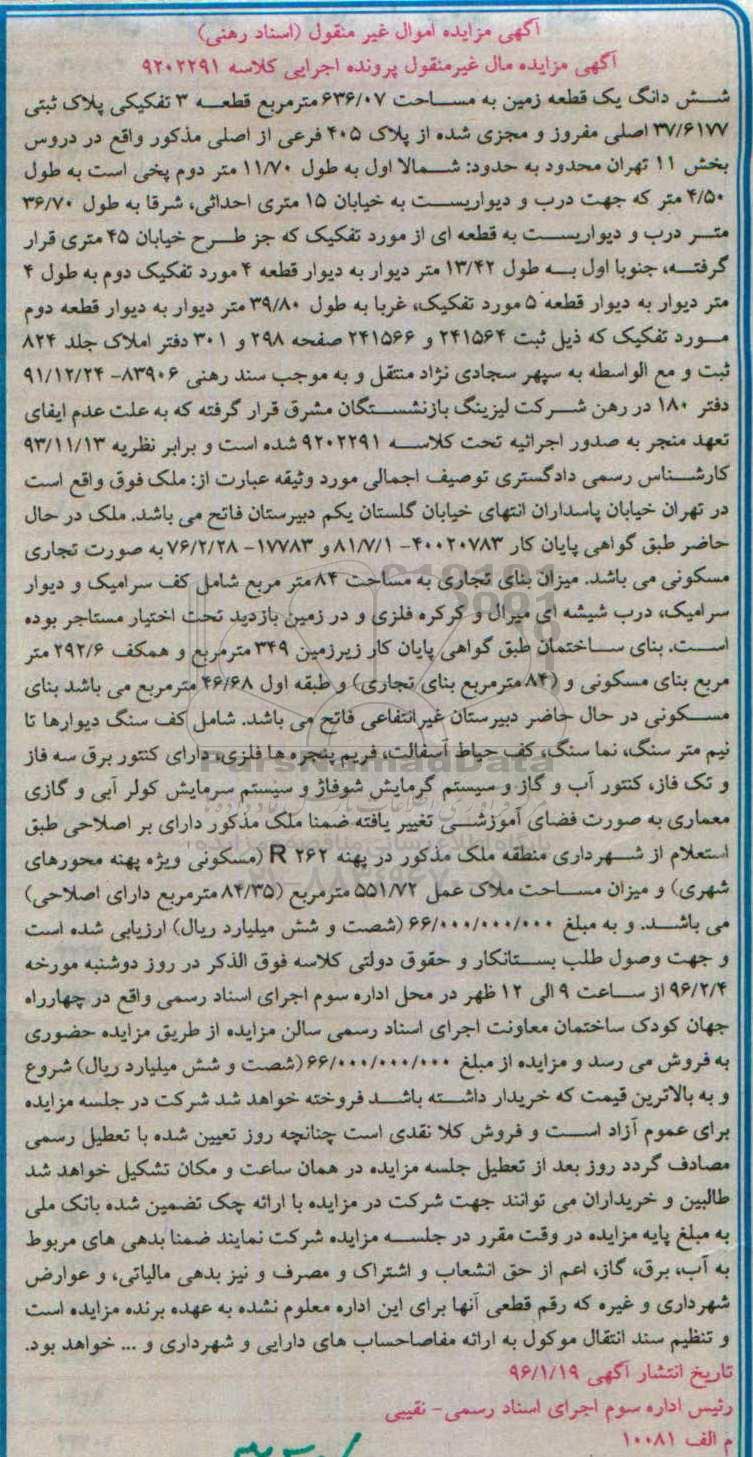 آگهی مزایده اموال غیر منقول (اسناد رهنی)
آگهی مزایده مال غیرمنقول پرونده اجرایی کلاسه ۹۲۰۲۲۹۱
شش دانگ یک قطعه زمین به مساحت ۶۳۶/۰۷ مترمربع قطعه ۳ تفکیکی پلاک ثبتی
۳۷/۶۱۷۷ اصلی مفروز و مجزی شده از پلاک ۴۰۵ فرعی از اصلی مذکور واقع در دروس
بخش ۱۱ تهران محدود به حدود: شمالا اول به طول ۱۱/۷۰ متر دوم پخی است به طول
۴/۵۰ متر که جهت درب و دیواریست به خیابان ۱۵ متری احداثی، شرقا به طول ۳۶/۷۰
متر درب و دیواریست به قطعه ای از مورد تفکیک که جز طرح خیابان ۴۵ متری قرار
گرفته، جنوبا اول به طول ۱۳/۴۲ متر دیوار به دیوار قطعه ۴ مورد تفکیک دوم به طول ۴
متر دیوار به دیوار قطعه ۵ مورد تفکیک، غربا به طول ۳۹/۸۰ متر دیوار به دیوار قطعه دوم
مورد تفکیک که ذیل ثبت ۲۴۱۵۶۴ و ۲۴۱۵۶۶ صفحه ۲۹۸ و ۳۰۱ دفتر املاک جلد ۸۲۴
ثبت و مع الواسطه به سپهر سجادی نژاد منتقل و به موجب سند رهنی ۸۳۹۰۶- ۹۱/۱۲/۲۴
دفتر ۱۸۰ در رهن شرکت لیزینگ بازنشستگان مشرق قرار گرفته که به علت عدم ایفای
تعهد منجر به صدور اجرائیه تحت کلاسه ۹۲۰۲۲۹۱ شده است و برابر نظریه ۹۳/۱۱/۱۳
کارشناس رسمی دادگستری توصیف اجمالی مورد وثیقه عبارت از: ملک فوق واقع است
در تهران خیابان پاسداران انتهای خیابان گلستان یکم دبیرستان فاتح می باشد. ملک در حال
حاضر طبق گواهی پایان کار ۴۰۰۲۰۷۸۳- ۸۱/۷/۱ و ۱۷۷۸۳- ۷۶/۲/۲۸ به صورت تجاری
مسکونی می باشد. میزان بنای تجاری به مساحت ۸۴ متر مربع شامل کف سرامیک و دیوار
سرامیک، درب شیشه ای میرال و کرکره فلزی و در زمین بازدید تحت اختیار مستاجر بوده
است. بنای ساختمان طبق گواهی پایان کار زیرزمین ۳۴۹ مترمربع و همکف ۲۹۲/۶ متر
مربع بنای مسکونی و (۸۴ مترمربع بنای تجاری) و طبقه اول ۴۶/۶۸ مترمربع می باشد بنای
مسکونی در حال حاضر دبیرستان غیرانتفاعی فاتح می باشد. شامل کف سنگ دیوارها تا
نیم متر سنگ، نما سنگ، کف حیاط آسفالت، فریم پنجره ها فلزی، دارای کنتور برق سه فاز
و تک فاز، کنتور آب و گاز و سیستم گرمایش شوفاژ و سیستم سرمایش کولر آبی و گازی
معماری به صورت فضای آموزشی تغییر یافته ضمنا ملک مذکور دارای بر اصلاحی طبق
استعلام از شهرداری منطقه ملک مذکور در پهنه R ۲۶۲ (مسکونی ویژه پهنه محورهای
شهری) و میزان مساحت ملاک عمل ۵۵۱/۷۲ مترمربع (۸۴/۳۵ مترمربع دارای اصلاحی)
می باشد. و به مبلغ ۶۶/۰۰۰/۰۰۰/۰۰۰ (شصت و شش میلیارد ریال) ارزیابی شده است
و جهت وصول طلب بستانکار و حقوق دولتی کلاسه فوق الذکر در روز دوشنبه مورخه
۹۶/۲/۴ از ساعت ۹ الی ۱۲ ظهر در محل اداره سوم اجرای اسناد رسمی واقع در چهارراه
جهان کودک ساختمان معاونت اجرای اسناد رسمی سالن مزایده از طریق مزایده حضوری
به فروش می رسد و مزایده از مبلغ ۶۶/۰۰۰/۰۰۰/۰۰۰ (شصت و شش میلیارد ریال) شروع
و به بالاترین قیمت که خریدار داشته باشد فروخته خواهد شد شرکت در جلسه مزایده
برای عموم آزاد است و فروش کلا نقدی است چنانچه روز تعیین شده با تعطیل رسمی
مصادف گردد روز بعد از تعطیل جلسه مزایده در همان ساعت و مکان تشکیل خواهد شد
طالبین و خریداران می توانند جهت شرکت در مزایده با ارائه چک تضمین شده بانک ملی
به مبلغ پایه مزایده در وقت مقرر در جلسه مزایده شرکت نمایند ضمنا بدهی های مربوط
به آب، برق، گاز، اعم از حق انشعاب و اشتراک و مصرف و نیز بدهی مالیاتی، و عوارض
شهرداری و غیره که رقم قطعی آنها برای این اداره معلوم نشده به عهده برنده مزایده است
و تنظیم سند انتقال موکول به ارائه مفاصاحساب های دارایی و شهرداری و ... خواهد بود.
تاریخ انتشار آگهی ۹۶/۱/۱۹
رئیس اداره سوم اجرای اسناد رسمی- نقیبی
م الف ۱۰۰۸۱